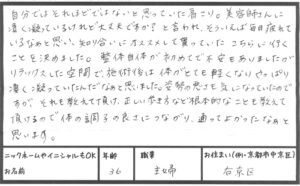 自分ではそれほどではないと思っていた肩こり。美容師さんに
凄く凝っているけれど大丈夫ですか?と言われ、そういえば毎日疲れて
いるなあと思い、知り合いにオススメして貰っていたこちらに行くこ
とを決めました。整体自体が初めてで不安もありましたが
リラックスした空間で施術後は体がとても軽くなりやっぱり
凄く凝っていたんだなあと思いました。姿勢の悪さも気になっていたので
すが、それも教えて頂け、正しい歩き方など根本的なことも教えて
頂けるので体の調子の良さにつながり、通ってよかったなぁと
思います。
ニックネームやイニシャルもOK 年齢 職業 お住まい(例:京都市中京区)
お名前 36 主婦 右京区